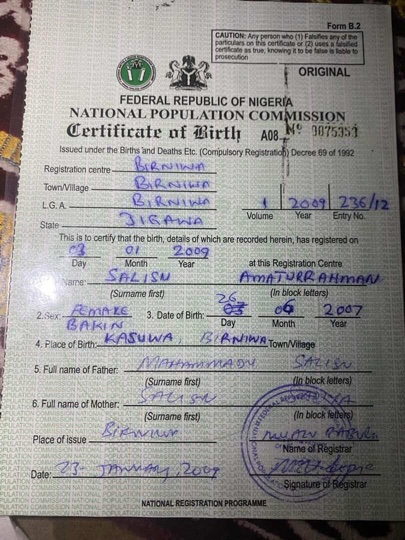 Form B.2
CAUTION: Any person who (1) Falsifies any of the
particulars on this certificate or (2) uses a falsified
certificate as true, knowing it to be false is liable to
prosecution
ORIGINAL
FEDERAL REPUBLIC OF NIGERIA
NATIONAL POPULATION COMMISSION
Certificate of Birth A08 No
Issued under the Births and Deaths Etc. (Compulsory Registration) Decree 69 of 1992
Registration centre BIRNIWA
Town/Village BIRNIWA
L.G.A. BIRNIWA 1 2009 236/12
State JIGAWA Volume Year Entry No.
This is to certify that the birth, details of which are recorded herein, has registered on
03 01 2009
Day Month Year at this Registration Centre
Name: SALISU AMATURRAHMAN
(Surname first) (In block letters)
2.Sex: FEMALE 3. Date of Birth: 26 06 2007
BAKIN Day Month Year
4. Place of Birth: KASUWA, BIRNIWA Town/Village
5. Full name of Father: MAHAMMADU SALISU
(Surname first) (In block letters)
6. Full name of Mother: SALISU
(Surname first) (In block letters)
Place of issue BIRNIWA
Name of Registrar
Date: 23 JANUARY, 2009
Signature of Registrar
NATIONAL REGISTRATION PROGRAMME